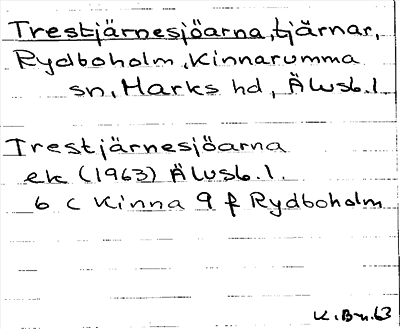 Trestjärnesjöarna, tjärnar,
Rydboholm, Kinnarumma
sn, Marks hd, Älvsb. l.
Trestjärnesjöarna
ek (1963) Älvsb. l.
6 C Kinna 9 f Rydboholm
K. Bn. 63